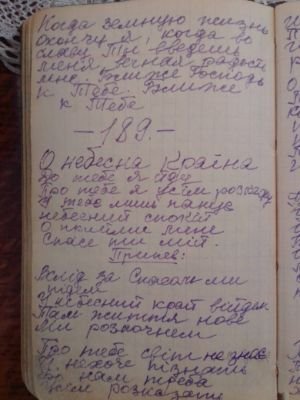 Когда земную жизнь
окончу я, когда во
славу Ты введешь
меня, вечная радость
мне. Ближе Господь
к Тебе. Ближе
к Тебе
— 189. —
О небесна Країна
до тебе я йду
Про тебе я усім розкажу
У тебе лиш панує
небесний спокій
О прийми мене
Спасе ти мій.
Припев:
Услід за Спасачем ми
йдем
У небесний край ввійдем
Там життя нове
Ми розпочнем
Про тебе світ не знає
й нехоче пізнать
нам треба
розказать